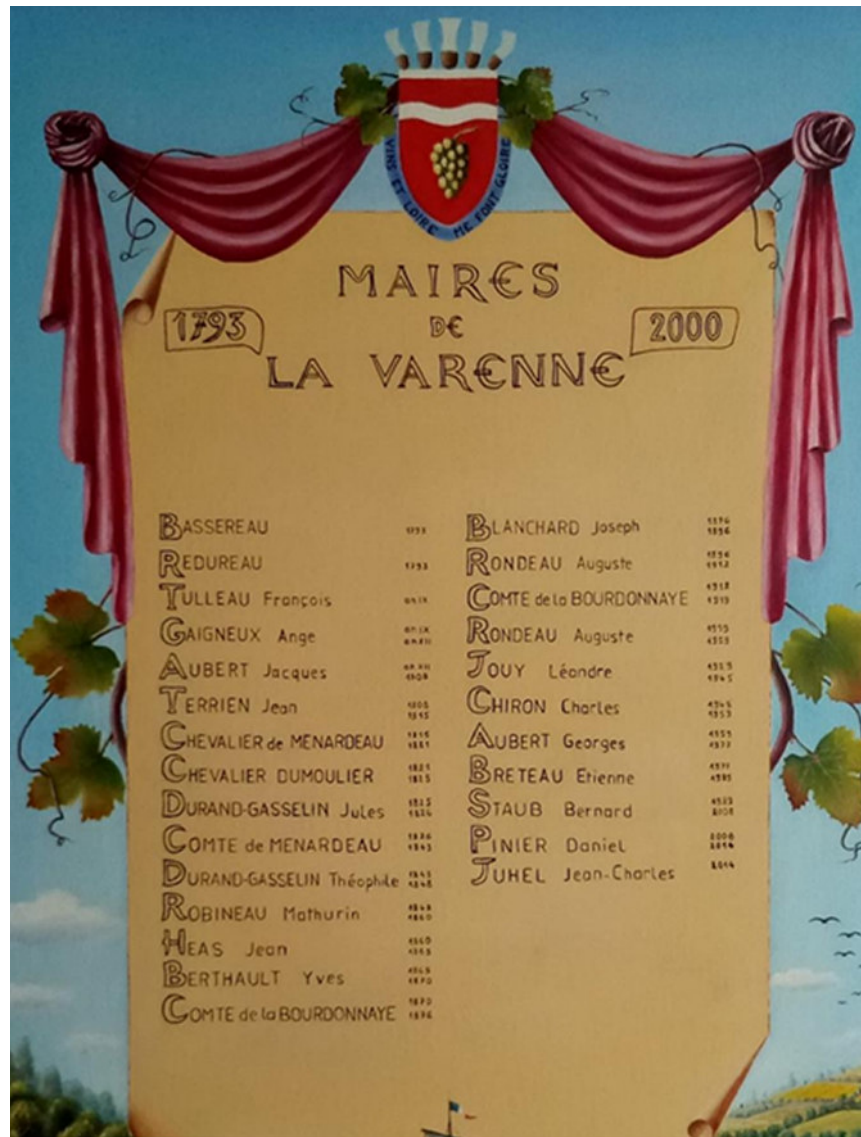 VINS ET LOIRE ME FONT GLOIRE
MAIRES
1793 DE 2000
LA VARENNE
BASSEREAU 1793
REDUREAU 1793
TULLEAU François an.IX
GAIGNEUX Ange an.IX
an.XII
AUBERT Jacques an.XII
1808
TERRIEN Jean 1808
1815
CHEVALIER de MENARDEAU
1821
CHEVALIER DUMOULIER 1821
1825
DURAND-GASSELIN Jules 1825
1826
COMTE de MENARDEAU 1826
1843
DURAND-GASSELIN Théophile 1843
1848
ROBINEAU Mathurin 1848
1860
HEAS Jean 1860
BERTHAULT Yves
1870
COMTE de la BOURDONNAYE 1870
1876
BLANCHARD Joseph 1876
1896
RONDEAU Auguste 1896
COMTE de la BOURDONNAYE
1919
RONDEAU Auguste 1919
JOUY Léandre
1945
CHIRON Charles 1945
1959
AUBERT Georges 1959
1977
BRETEAU Etienne 1977
STAUB Bernard
2008
PINIER Daniel 2008
2014
JUHEL Jean-Charles 2014